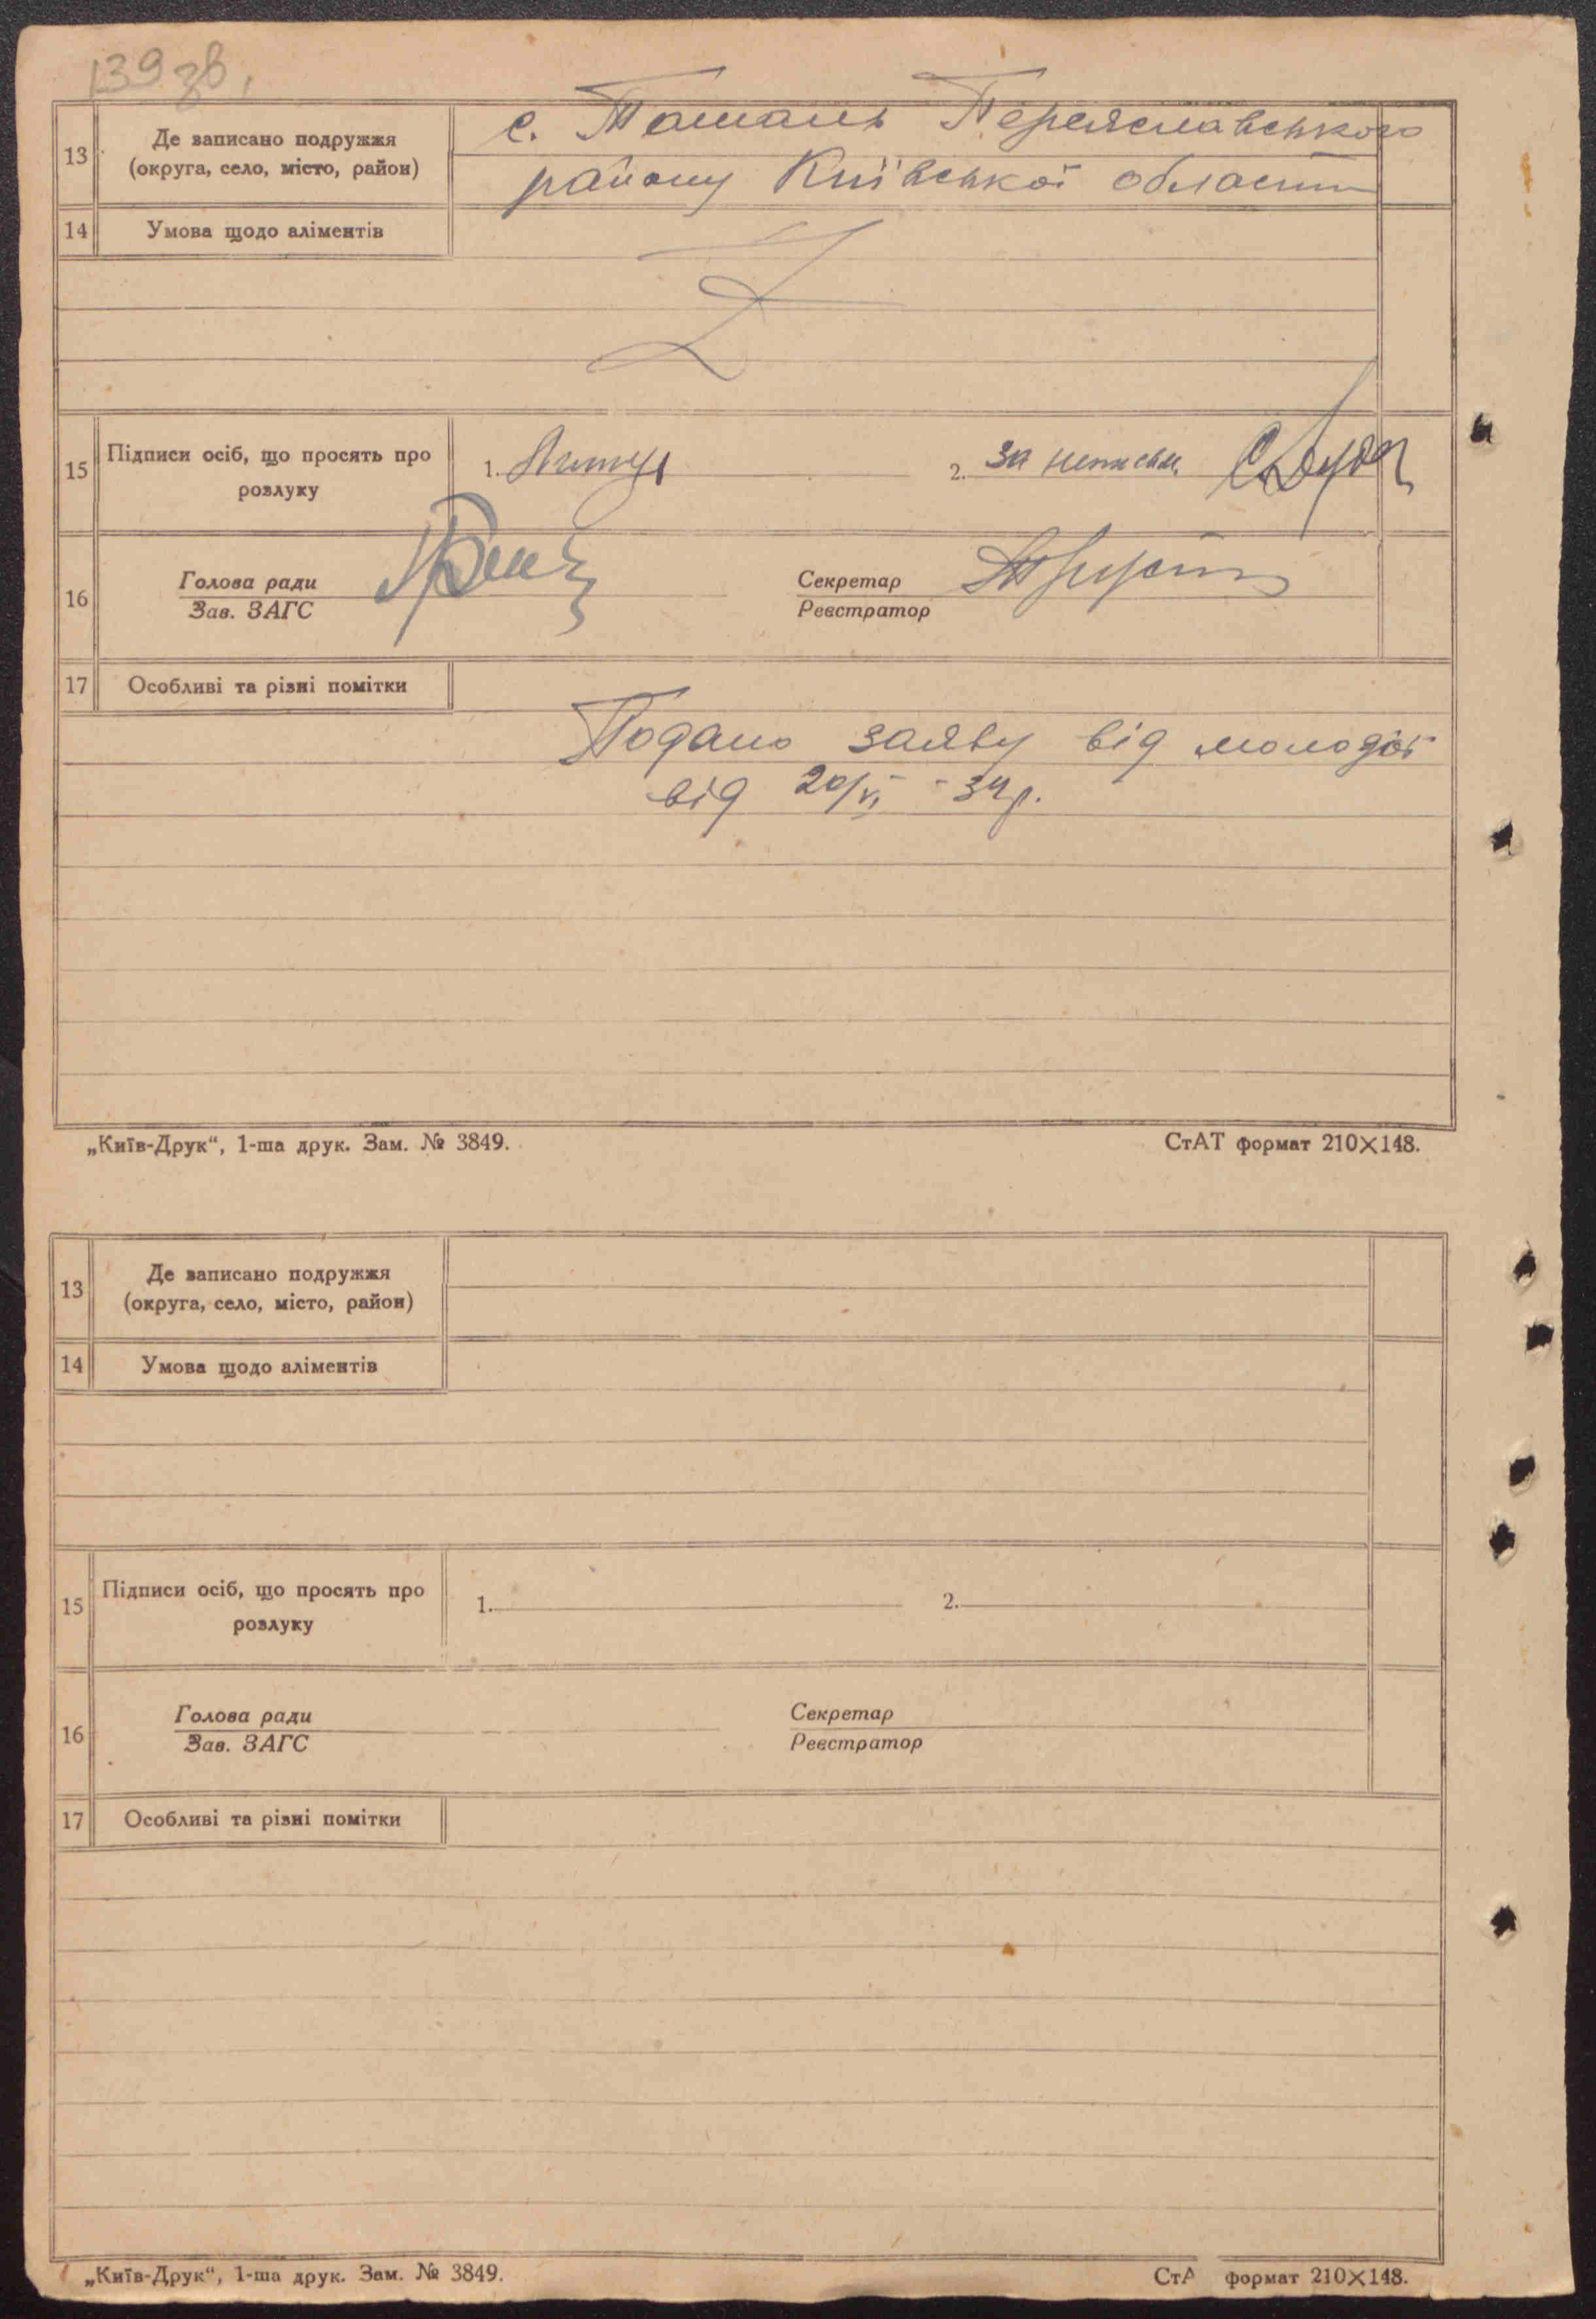 139 зв.
13
Де записано подружжя
(округа, село, місто, район)
с. Ташань Переяславського
району Київської области
14
Умова щодо аліментів
15
Підписи осіб, що просять про
розлуку
1.
2. за неписьм.
16
Голова ради
Зав. ЗАГС
Секретар
Реєстратор
17
Особливі та різні помітки
Подано заяву від молодої
від 20/VI - 34 р.
„Київ-Друк“, 1-ша друк. Зам. № 3849.
СтАТ формат 210×148.
13
Де записано подружжя
(округа, село, місто, район)
14
Умова щодо аліментів
15
Підписи осіб, що просять про
розлуку
1.
2.
16
Голова ради
Зав. ЗАГС
Секретар
Реєстратор
17
Особливі та різні помітки
„Київ-Друк“, 1-ша друк. Зам. № 3849.
СтА формат 210×148.